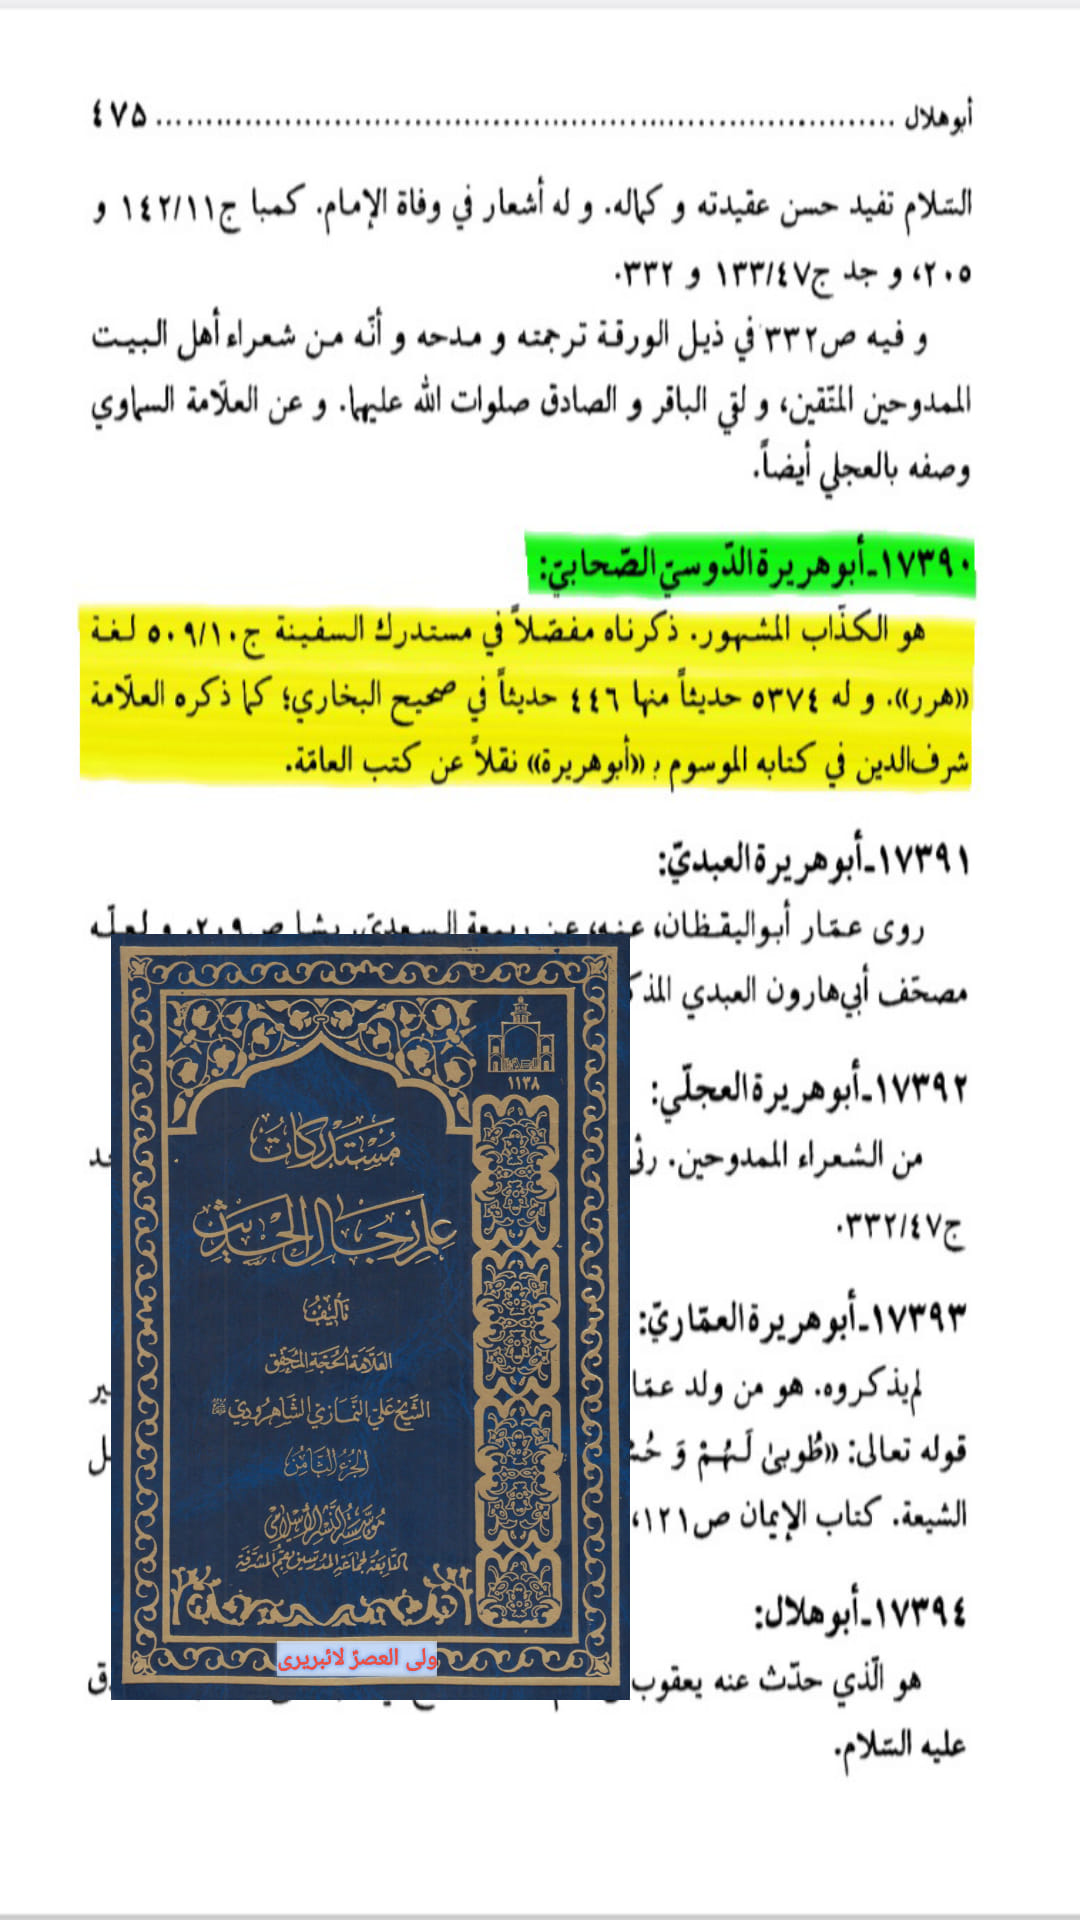 أبوهلال ........................................................................ ٤٧٥
السّلام تفيد حسن عقيدته و كماله. و له أشعار في وفاة الإمام. كمبا ج١٤٢/١١ و
٢٠٥، و جد ج١٣٣/٤٧ و ٣٣٢.
و فيه ص٣٣٢ في ذيل الورقة ترجمته و مدحه و أنّه من شعراء أهل البيت
الممدوحين المتّقين، و لقي الباقر و الصادق صلوات الله عليهما. و عن العلّامة السماوي
وصفه بالعجلي أيضاً.
١٧٣٩٠ـ أبو هريرة الدّوسيّ الصّحابيّ:
هو الكذّاب المشهور. ذكرناه مفصّلاً في مستدرك السفينة ج٥٠٩/١٠ لغة
«هرر». و له ٥٣٧٤ حديثاً منها ٤٤٦ حديثاً في صحيح البخاري؛ كما ذكره العلّامة
شرف‌الدين في كتابه الموسوم بـ «أبوهريرة» نقلاً عن كتب العامّة.
١٧٣٩١ـ أبو هريرة العبديّ:
روى عمّار أبواليقظان، عنه، عن ربيعة السعديّ. بشا ص٢٠٩. و لعلّه
مصحّف أبي‌هارون العبدي
١٧٣٩٢ـ أبو هريرة العجلّي:
من الشعراء الممدوحين.
ج٣٣٢/٤٧.
١٧٣٩٣ـ أبو هريرة العمّاريّ:
لم‌يذكروه. هو من ولد
قوله تعالى: «طُوبىٰ لَهُمْ وَ
الشيعة. كتاب الإيمان ص١٢١،
١٧٣٩٤ـ أبو هلال:
هو الّذي حدّث عنه يعقوب
عليه السّلام.
١١٣٨
مُسْتَدْرَكَاتُ
عِلْمِ رِجَالِ الحَدِيثِ
تَأليفُ
العَلّامَة الحُجّة المُحَقِق
الشَّيخ عَلي النَّمَازي الشَّاهرُودي
الجزءُ الثَّامِنُ
مُؤسَّسَةُ النَّشْرِ الإسْلَامِي
التَّابِعَةُ لِجَمَاعَةِ المُدَرِّسِينَ بِقُمِ المُشَرَّفَة
ولی العصرؑ لائبریری